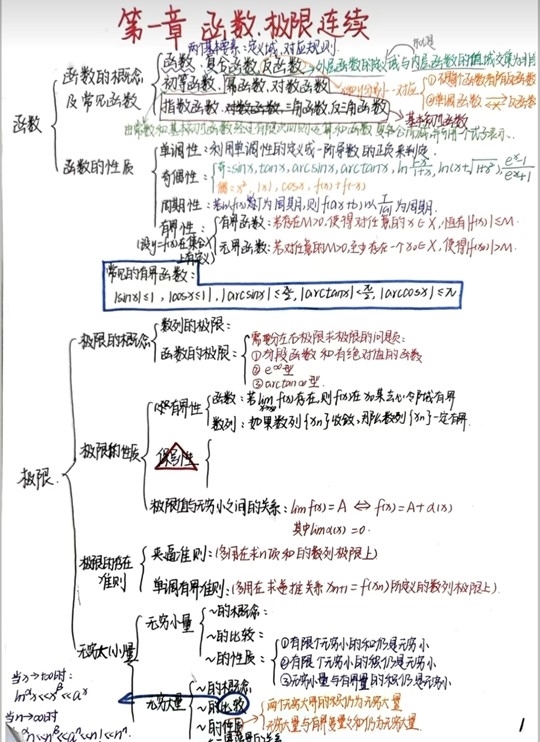 第一章 函数 极限 连续
两个基本要素：定义域、对应规则.
函数
函数的概念及常见函数
函数、复合函数、反函数
外层函数的定义域与内层函数的值域交集为非空
初等函数、幂函数、对数函数
一一对应
①不是每个函数都有反函数
②单调函数一定有反函数
指数函数、对数函数、三角函数、反三角函数
基本初等函数
函数的性质
单调性：利用单调性的定义或一阶导数的正负来判定.
奇偶性：
奇：sinx, tanx, arcsinx, arctanx, ln(1-x)/(1+x), ln(x+√1+x²), (e^x-1)/(e^x+1)
偶：x², |x|, cosx, f(x)+f(-x)
周期性：若f(x)以T为周期，则f(ax+b)以T/|a|为周期.
有界性：
(设y=f(x)在集合X上有定义)
有界函数：若存在M>0，使得对任意的x∈X，恒有|f(x)|≤M.
无界函数：若对任意的M>0，至少存在一个x₀∈X，使得|f(x₀)|>M.
常见的有界函数：
|sinx|≤1, |cosx≤1|, |arcsinx|≤π/2, |arctanx|<π/2, |arccosx|≤π
极限
极限的概念
数列的极限：
函数的极限：
需要分左右极限求极限的问题：
①分段函数和有绝对值的函数
②e^∞型
③arctan∞型.
极限的性质
有界性
函数：若lim f(x)存在，则f(x)在x₀某去心邻域有界
数列：如果数列{xn}收敛，那么数列{xn}一定有界.
保号性
极限值与无穷小之间的关系：lim f(x)=A ⇔ f(x)=A+α(x)
其中limα(x)=0.
极限的存在准则
夹逼准则：(多用在求n项和的数列极限上)
单调有界准则：(多用在求递推关系xn+1=f(xn)所定义的数列极限上).
无穷大(小)量
无穷小量
~的概念：
~的比较：
~的性质：
①有限个无穷小的和仍是无穷小
②有限个无穷小的积仍是无穷小
③无穷小量与有界量的积仍是无穷小
无穷大量
~的概念
~的比较
~的性质
两个无穷大量的积仍为无穷大量
无穷大量与有界变量之和仍为无穷大量.
当x→+∞时：
ln^αx<<x^β<<a^x
当n→∞时
ln^αn<<n^β<<a^n<<n!<<n^n.
1